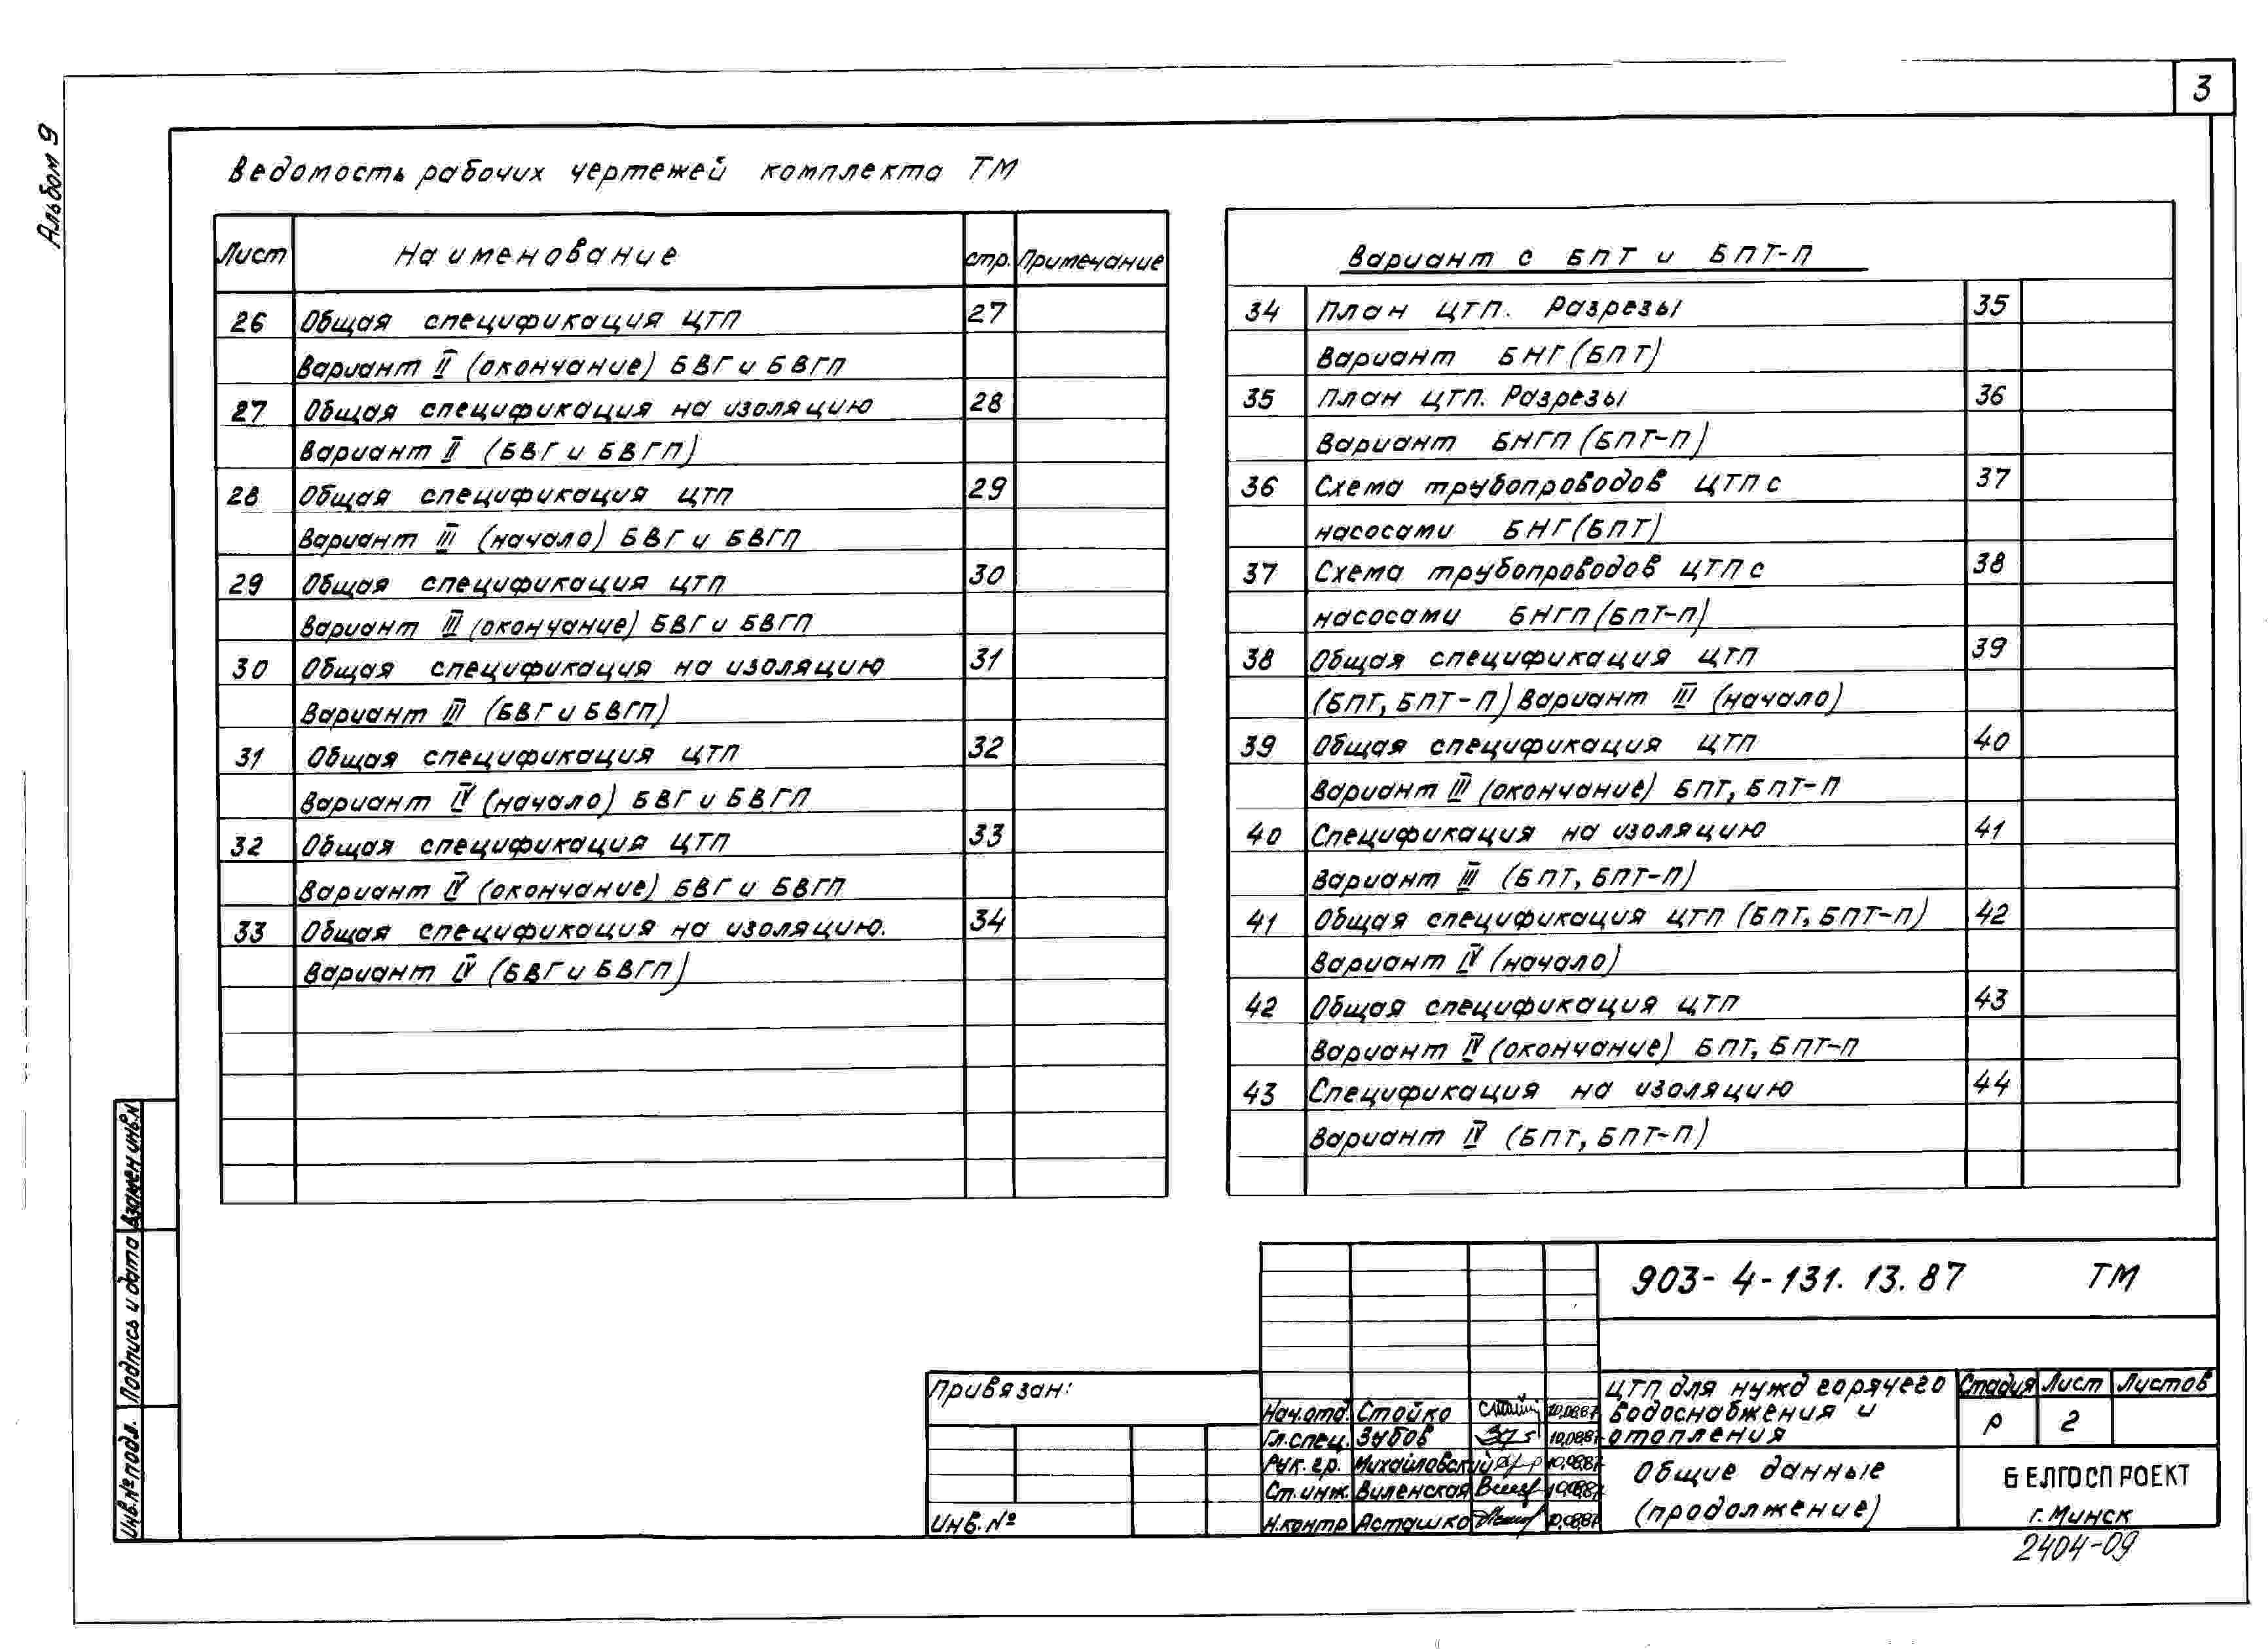 3
Альбом 9
Ведомость рабочих чертежей комплекта ТМ
Лист Наименование стр. Примечание
26 Общая спецификация ЦТП 27
Вариант II (окончание) БВГ и БВГП
27 Общая спецификация на изоляцию 28
Вариант II (БВГ и БВГП)
28 Общая спецификация ЦТП 29
Вариант III (начало) БВГ и БВГП
29 Общая спецификация ЦТП 30
Вариант III (окончание) БВГ и БВГП
30 Общая спецификация на изоляцию 31
Вариант III (БВГ и БВГП)
31 Общая спецификация ЦТП 32
Вариант IV (начало) БВГ и БВГП
32 Общая спецификация ЦТП 33
Вариант IV (окончание) БВГ и БВГП
33 Общая спецификация на изоляцию. 34
Вариант IV (БВГ и БВГП)
Вариант с БПТ и БПТ-П
34 План ЦТП. Разрезы 35
Вариант БНГ (БПТ)
35 План ЦТП. Разрезы 36
Вариант БНГП (БПТ-П)
36 Схема трубопроводов ЦТП с 37
насосами БНГ (БПТ)
37 Схема трубопроводов ЦТП с 38
насосами БНГП (БПТ-П)
38 Общая спецификация ЦТП 39
(БПТ, БПТ-П) Вариант III (начало)
39 Общая спецификация ЦТП 40
Вариант III (окончание) БПТ, БПТ-П
40 Спецификация на изоляцию 41
Вариант III (БПТ, БПТ-П)
41 Общая спецификация ЦТП (БПТ, БПТ-П) 42
Вариант IV (начало)
42 Общая спецификация ЦТП 43
Вариант IV (окончание) БПТ, БПТ-П
43 Спецификация на изоляцию 44
Вариант IV (БПТ, БПТ-П)
Взамен инв.№
Подпись и дата
Инв.№ подл.
Привязан:
Инв. №
Нач.отд. Стойко 10.08.87
Гл.спец. Зубов 10.08.87
Рук. гр. Михайловский 10.08.87
Ст.инж. Виленская 10.08.87
Н.контр Асташко 10.08.87
903-4-131.13.87 ТМ
ЦТП для нужд горячего
водоснабжения и
отопления
Стадия Лист Листов
Р 2
Общие данные
(продолжение)
БЕЛГОСПРОЕКТ
г. Минск
2404-09